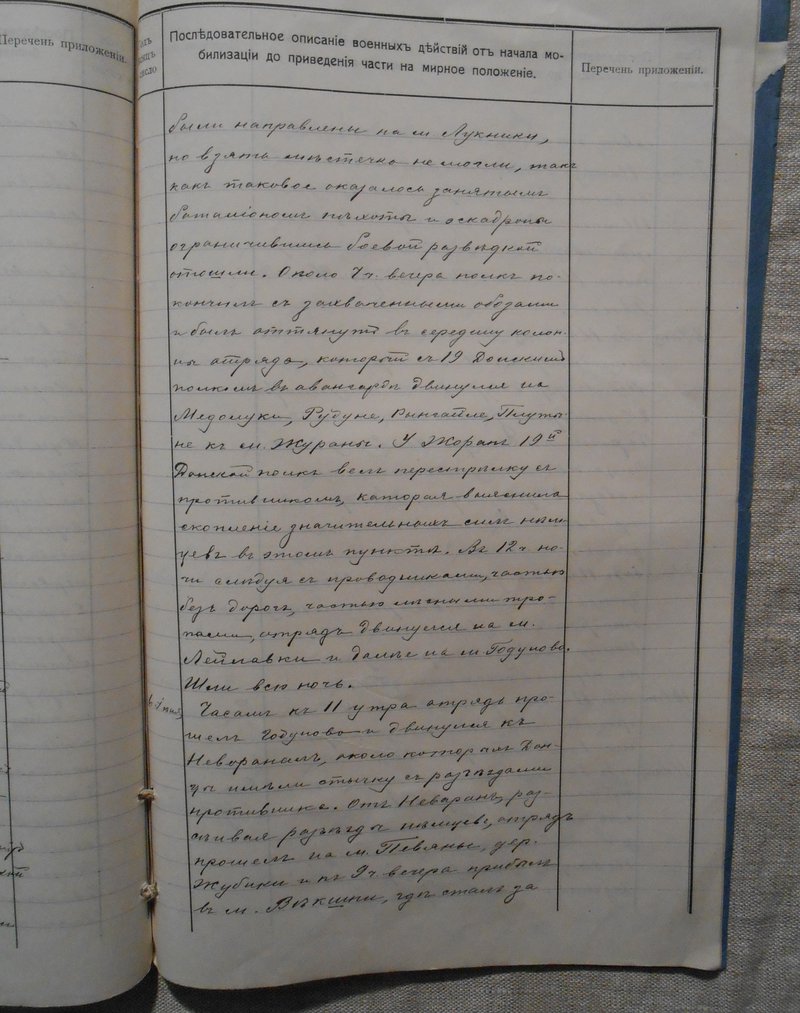 Перечень приложеніи.
Послѣдовательное описаніе военныхъ дѣйствій отъ начала мо-
билизаціи до приведенія части на мирное положеніе.
Перечень приложеніи.
были направлены на м Лукники,
но взять мѣстечко не могли, такъ
какъ таковое оказалось занятымъ
баталіономъ пѣхоты и эскадроны
ограничившись боевой развѣдкой
отошли. Около 7 ч. вечера полкъ по-
кончилъ съ захваченными обозами
и былъ оттянутъ въ середину колон-
ны отряда, который съ 19 Донскимъ
полкомъ въ авангардѣ двинулся на
Медолуки, Рудуне, Рынгайле, Плуты-
не къ м. Жураны. У Жоранъ 19й
Донской полкъ велъ перестрѣлку съ
противникомъ, которая выяснила
скопленіе значительныхъ силъ нѣм-
цевъ въ этомъ пунктѣ. Въ 12 ч. но-
чи слѣдуя съ проводниками, частью
безъ дорогъ, частью лѣсными тро-
пами, отрядъ двинулся на м.
Лейлавки и далѣе на м Годуново.
Шли всю ночь.
Часамъ къ 11 утра отрядъ про-
шелъ Годуново и двинулся къ
Неворанамъ, около которыхъ Дон-
цы имѣли стычку съ разъѣздами
противника. Отъ Неваранъ, раз-
сѣивая разъѣзды нѣмцевъ, отрядъ
прошелъ на м. Певяны, дер.
Жубики и къ 9 ч. вечера прибылъ
въ м. Вѣкшни, гдѣ сталъ за